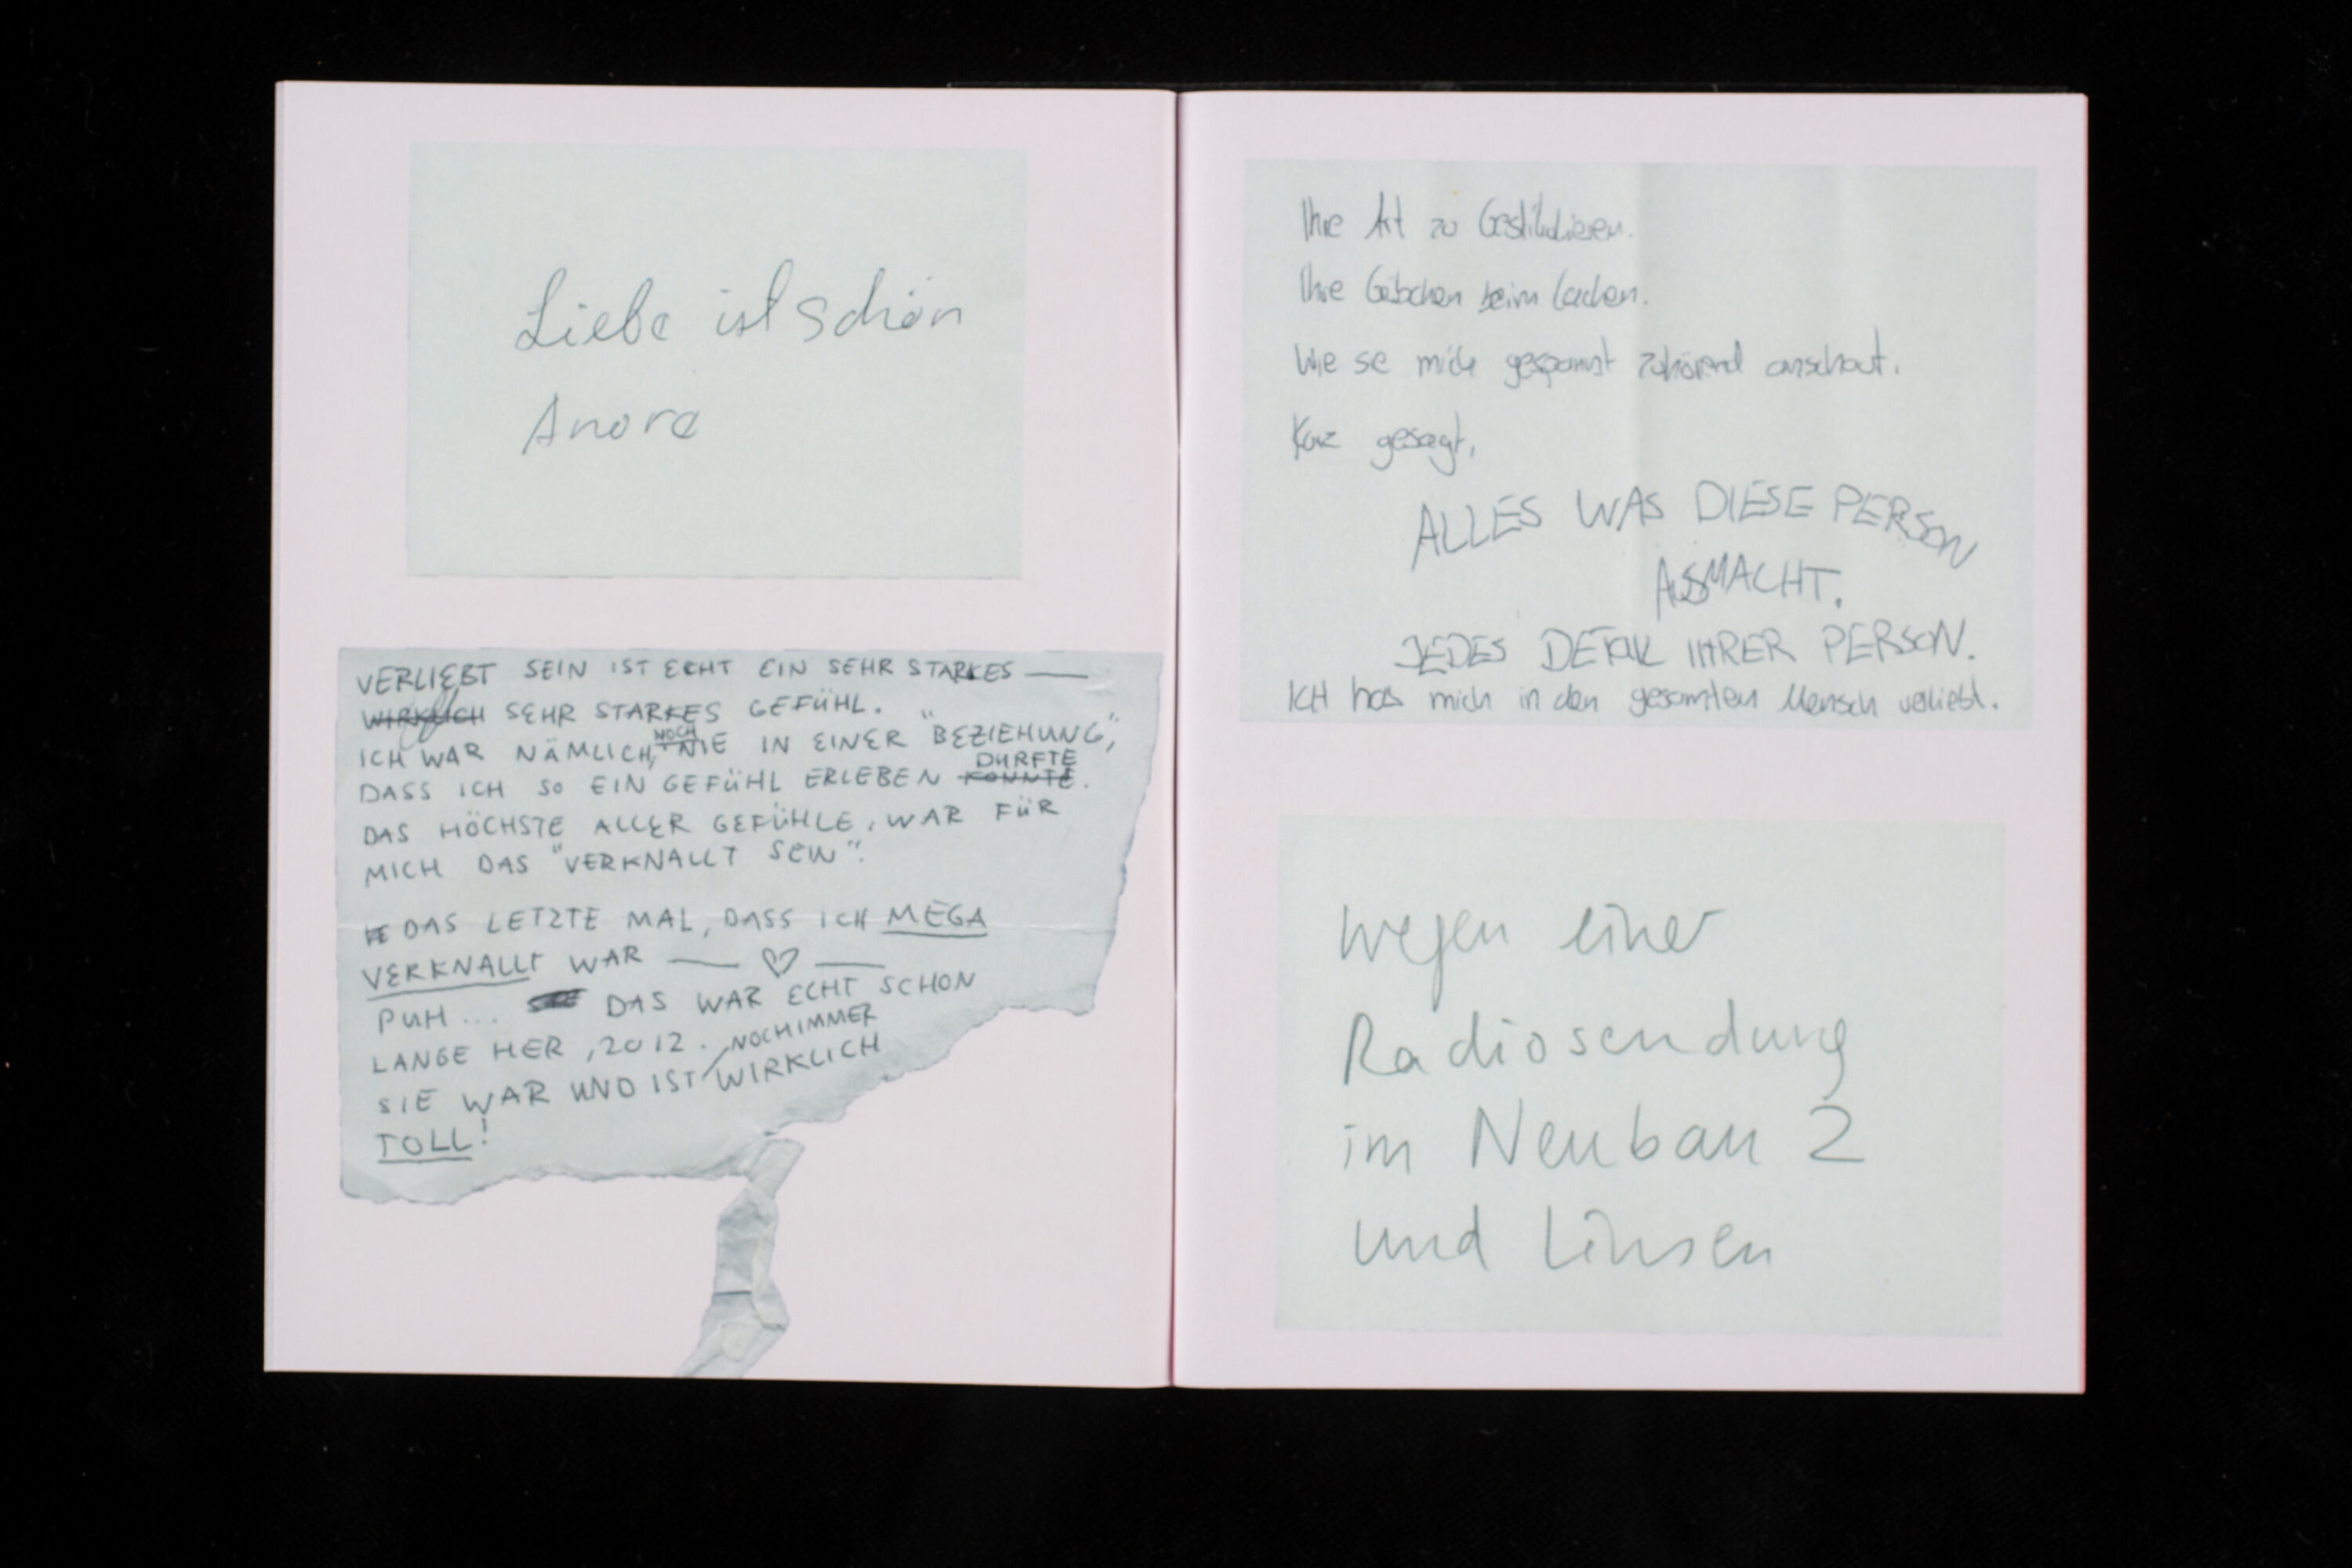 Liebe ist schön
Anora
VERLIEBT SEIN IST ECHT EIN SEHR STARKES —
WIRKLICH SEHR STARKES GEFÜHL.
ICH WAR NÄMLICH, NOCH NIE IN EINER "BEZIEHUNG",
DASS ICH SO EIN GEFÜHL ERLEBEN KONNTE DURFTE.
DAS HÖCHSTE ALLER GEFÜHLE, WAR FÜR
MICH DAS "VERKNALLT SEIN".
DAS LETZTE MAL, DASS ICH MEGA
VERKNALLT WAR — ♡ —
PUH... DAS WAR ECHT SCHON
LANGE HER, 2012.
SIE WAR UND IST NOCH IMMER WIRKLICH
TOLL!
Ihre Art zu Gestikulieren.
Ihre Gübchen beim lachen.
Wie se mich gespannt zuhörend anschaut.
Kurz gesagt,
ALLES WAS DIESE PERSON
AUSMACHT.
JEDES DETAIL IHRER PERSON.
ICH hab mich in den gesamten Mensch verliebt.
wegen einer
Radiosendung
im Neubau 2
und Linsen